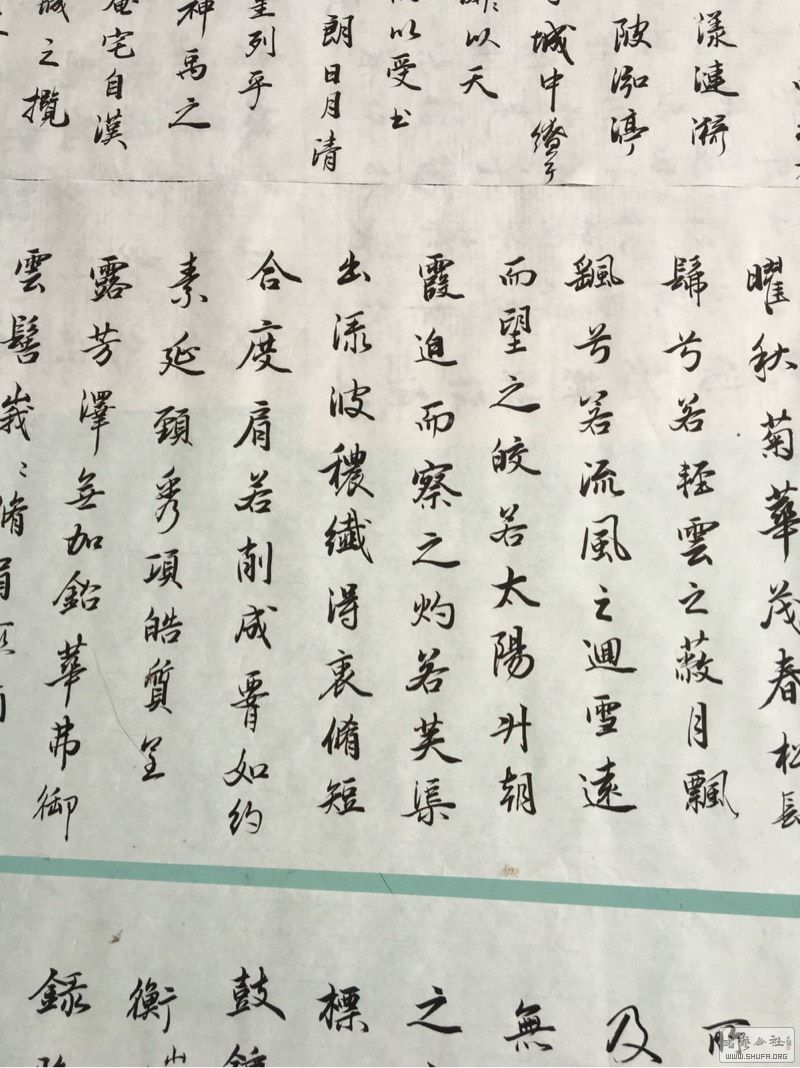 漾漣漪
陂泓渟
城中
以天
以受
朗日月清
列乎
神禹之
宅自漢
城之攬
曜秋菊華茂春松長
髴兮若輕雲之蔽月飄
颻兮若流風之迴雪遠
而望之皎若太陽升朝
霞迫而察之灼若芙渠
出淥波穠纖得衷脩短
合度肩若削成腰如約
素延頸秀項皓質呈
露芳澤無加鉛華弗御
雲髻峩〻脩眉
所
及
無
之
標
鼓
衡山
錄
WWW.SHUFA.ORG